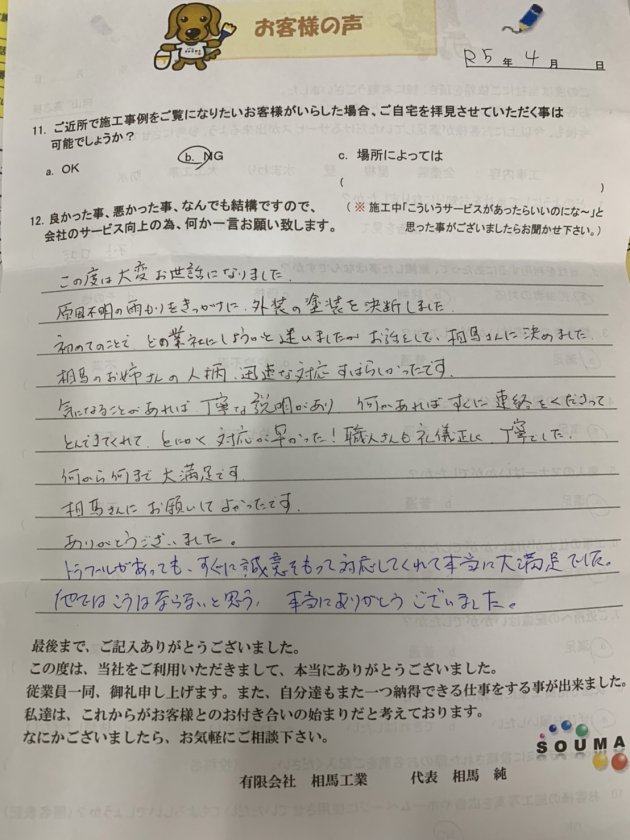 お客様の声
R5年 4月 日
11. ご近所で施工事例をご覧になりたいお客様がいらした場合、ご自宅を拝見させていただく事は
可能でしょうか?
a. OK b. NG c. 場所によっては
( )
12. 良かった事、悪かった事、なんでも結構ですので、
会社のサービス向上の為、何か一言お願い致します。
(※ 施工中「こういうサービスがあったらいいのにな~」と
思った事がございましたらお聞かせ下さい。)
この度は大変お世話になりました。
原因不明の雨もりをきっかけに、外装の塗装を決断しました。
初めてのことで どの業社にしようかと迷いましたが お話をして、相馬さんに決めました。
相馬のお姉さんの人柄、迅速な対応 すばらしかったです。
気になることがあれば 丁寧な説明があり 何かあればすぐに連絡をくださって
とんできてくれて、とにかく 対応が早かった!職人さんも礼儀正しく、丁寧でした。
何から何まで 大満足です。
相馬さんに お願いして よかったです。
ありがとうございました。
トラブルがあっても、すぐに誠意をもって対応してくれて本当に大満足でした。
他ではこうはならないと思う、 本当にありがとう ございました。
最後まで、ご記入ありがとうございました。
この度は、当社をご利用いただきまして、本当にありがとうございました。
従業員一同、御礼申し上げます。また、自分達もまた一つ納得できる仕事をする事が出来ました。
私達は、これからがお客様とのお付き合いの始まりだと考えております。
なにかございましたら、お気軽にご相談下さい。
SOUMA
有限会社 相馬工業 代表 相馬 純